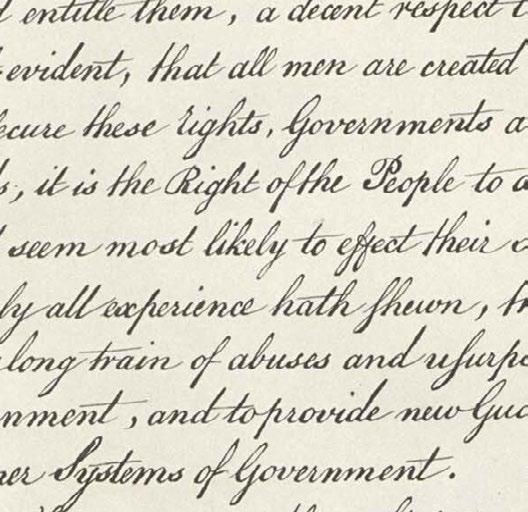 entitle them, a decent respect t
evident, that all men are created
ecure these rights, Governments a
s, it is the Right of the People to a
seem most likely to effect their
ly all experience hath shewn, th
long train of abuses and usurpa
nment, and to provide new Gua
ner Systems of Government.